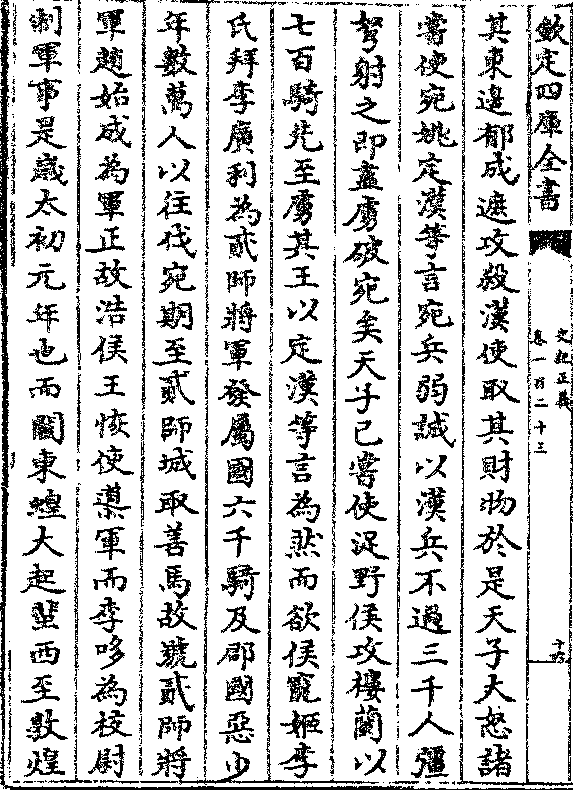 欽定四庫全書
史記正義
卷一百二十三
其東邊郁成遮攻殺漢使取其財物於是天子大怒諸
嘗使宛姚定漢等言宛兵弱誠以漢兵不過三千人彊
弩射之即盡虜破宛矣天子已嘗使浞野侯攻樓蘭以
七百騎先至虜其王以定漢等言為然而欲侯寵姬李
氏拜李廣利為貳師將軍發屬國六千騎及郡國惡少
年數萬人以往伐宛期至貳師城取善馬故號貳師將
軍趙始成為軍正故浩侯王恢使導軍而李哆為校尉
制軍事是歲太初元年也而關東蝗大起蜚西至敦煌